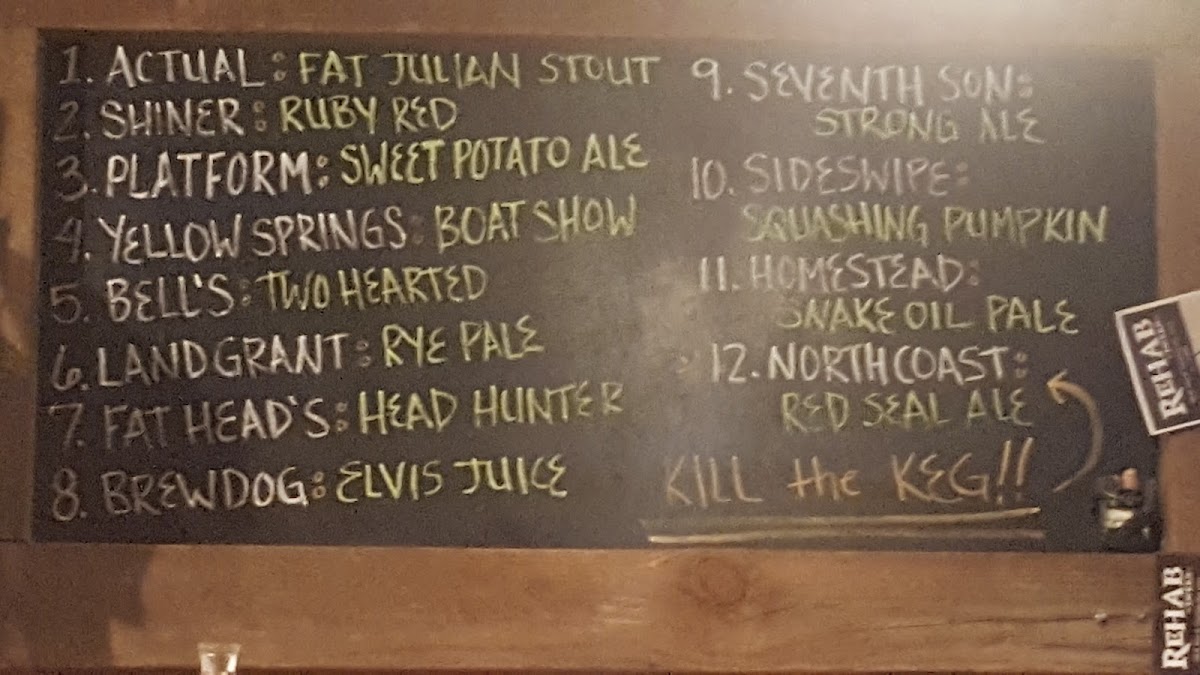 1. ACTUAL: FAT JULIAN STOUT
2. SHINER: RUBY RED
3. PLATFORM: SWEET POTATO ALE
4. YELLOW SPRINGS: BOAT SHOW
5. BELL'S: TWO HEARTED
6. LAND GRANT: RYE PALE
7. FAT HEAD'S: HEAD HUNTER
8. BREWDOG: ELVIS JUICE
9. SEVENTH SON:
STRONG ALE
10. SIDESWIPE:
SQUASHING PUMPKIN
11. HOMESTEAD:
SNAKE OIL PALE
12. NORTH COAST:
RED SEAL ALE
KILL the KEG!!
REHAB
REHAB